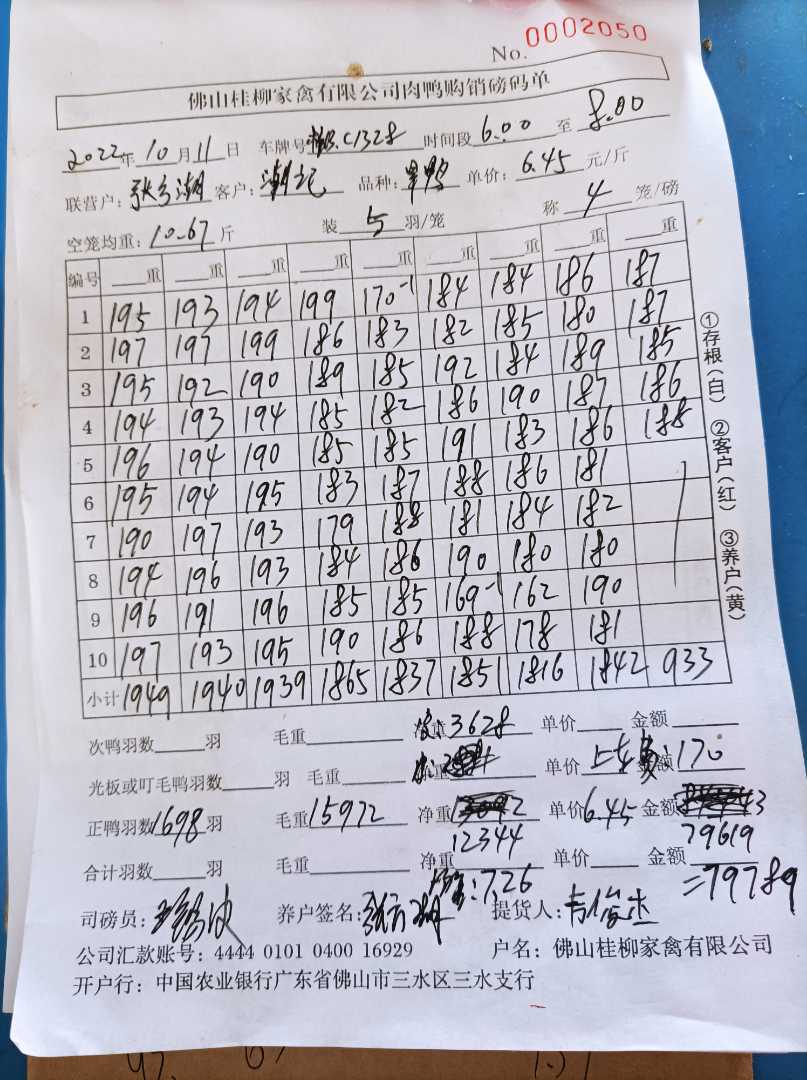 No. 0002050
佛山桂柳家禽有限公司肉鸭购销磅码单
2022年10月11日 车牌号 C1328 时间段 6.00 至 8.00
联营户: 客户: 潮记 品种: 单价: 6.45 元/斤
空笼均重: 10.67 斤 装 5 羽/笼 称 4 笼/磅
编号 重 重 重 重 重 重 重 重 重
1 195 193 194 199 170-1 184 184 186 187
2 197 197 199 186 183 182 185 180 187
3 195 192 190 189 185 192 184 189 185
4 194 193 194 185 182 186 190 187 186
5 196 194 190 185 185 191 183 186 188
6 195 194 195 183 187 188 186 181
7 190 197 193 179 188 181 184 182
8 194 196 193 184 186 190 180 180
9 196 191 196 185 185 169-1 162 190
10 197 193 195 190 186 188 178 181
小计 1949 1940 1939 1865 1837 1851 1816 1842 933
①存根(白) ②客户(红) ③养户(黄)
次鸭羽数 羽 毛重 3628 单价 金额
光板或叮毛鸭羽数 羽 毛重 净重 单价 上车费:170
正鸭羽数 1698 羽 毛重 15972 净重 单价 6.45 金额
12344 79619
合计羽数 羽 毛重 净重 单价 金额
:7.26 =79789
司磅员: 养户签名: 提货人:
公司汇款账号: 4444 0101 0400 16929 户名: 佛山桂柳家禽有限公司
开户行: 中国农业银行广东省佛山市三水区三水支行